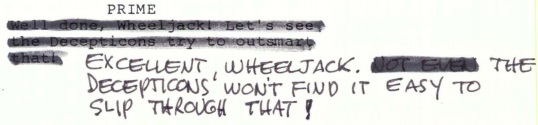 PRIME
Well done, Wheeljack! Let's see
the Decepticons try to outsmart
that!
EXCELLENT, WHEELJACK. NOT EVEN THE
DECEPTICONS WON'T FIND IT EASY TO
SLIP THROUGH THAT!